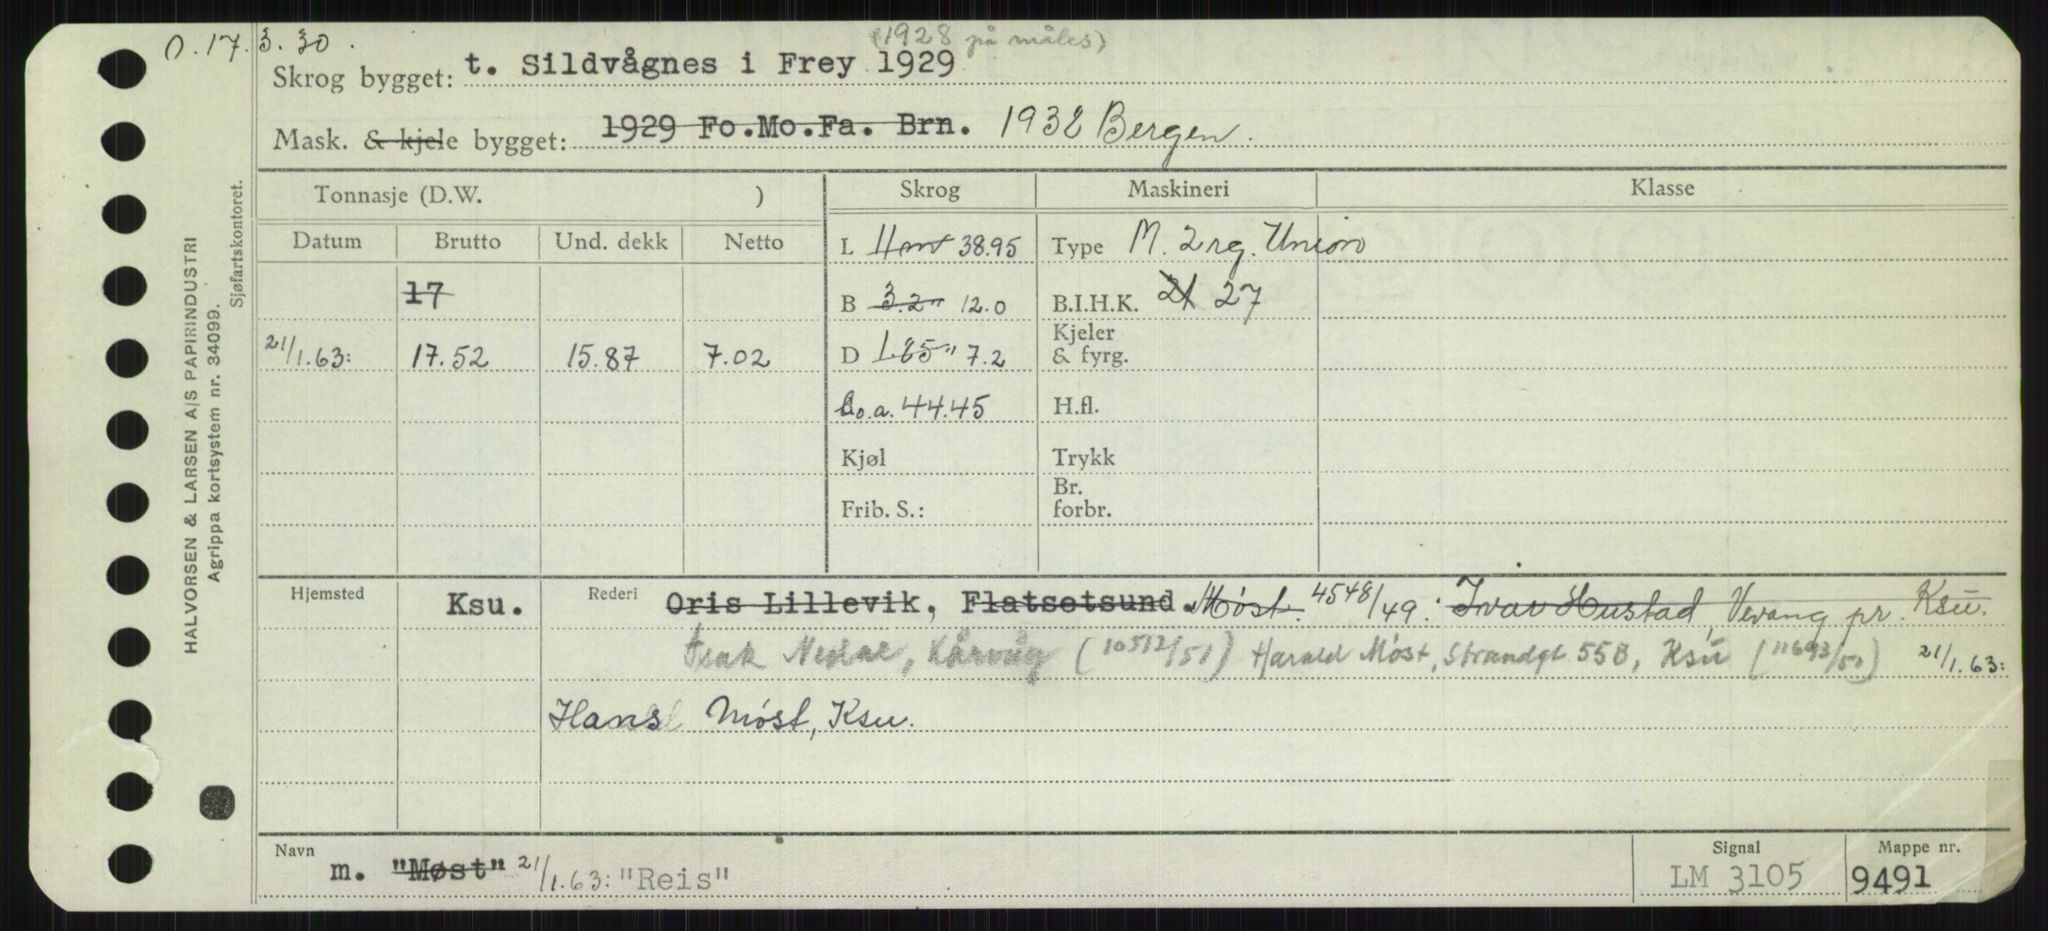 O. 17.3.30.
(1928 på måles)
Skrog bygget: t. Sildvågnes i Frey 1929
Mask. & kjele bygget: 1929 Fo.Mo.Fa. Brn. 1932 Bergen.
Tonnasje (D.W. ) Skrog Maskineri Klasse
Datum Brutto Und. dekk Netto L 11 mt 38.95 Type M. 2 rg. Union
17 B 3.2" 12.0 B.I.H.K. 21 27
21/1.63: 17.52 15.87 7.02 D 1.85" 7.2 Kjeler & fyrg.
L.o.a. 44.45 H.fl.
Kjøl Trykk
Frib. S.: Br. forbr.
Hjemsted Ksu. Rederi Oris Lillevik, Flatsetsund. Møst. 4548/49: Ivar Hustad, Vevang pr. Ksu.
Kårvåg (10512/51) Harald Møst, Strandgt 55B, Ksu (11693/51) 21/1.63:
Hans Møst, Ksu.
Navn m. "Møst" 21/1.63: "Reis" Signal LM 3105 Mappe nr. 9491
HALVORSEN & LARSEN A/S PAPIRINDUSTRI
Agrippa kortsystem nr. 34099.
Sjøfartskontoret.